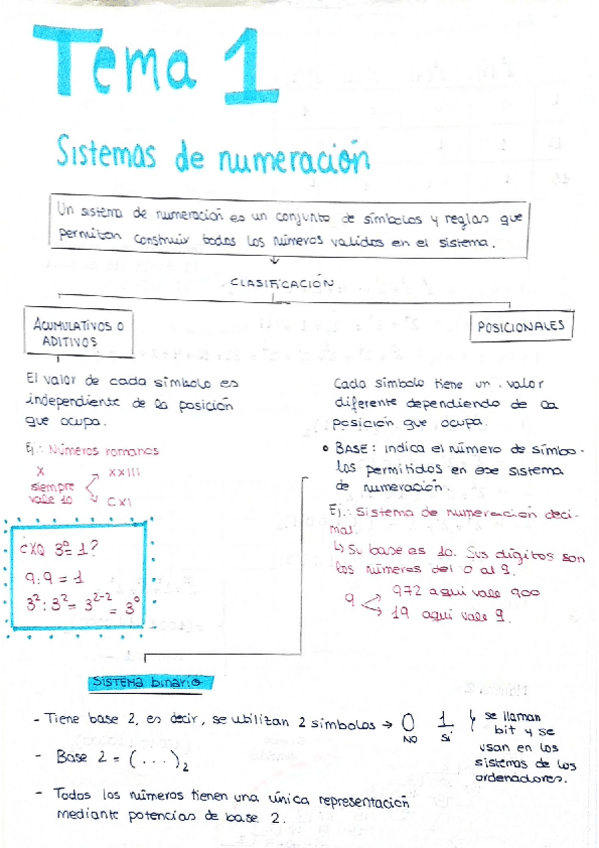 Tema 1
Sistemas de numeración
Un sistema de numeración es un conjunto de símbolos y reglas que
permiten construir todos los números validos en el sistema.
CLASIFICACIÓN
ACUMULATIVOS O
ADITIVOS
POSICIONALES
El valor de cada símbolo es
independiente de la posición
que ocupa.
Ej.: Números romanos
X
siempre
vale 10
XXIII
CXI
¿XQ 3º = 1?
9:9 = 1
3²:3² = 3²⁻² = 3⁰
Cada símbolo tiene un valor
diferente dependiendo de la
posición que ocupa.
• BASE: indica el número de símbo-
los permitidos en ese sistema
de numeración.
Ej.: Sistema de numeración deci-
mal.
↳ Su base es 10. Sus dígitos son
los números del 0 al 9.
9
972 aquí vale 900
19 aquí vale 9.
SISTEMA binario
- Tiene base 2, es decir, se utilizan 2 símbolos → 0 1
NO SI
se llaman
bit y se
usan en los
sistemas de los
ordenadores.
- Base 2 = (...)₂
- Todos los números tienen una única representación
mediante potencias de base 2.